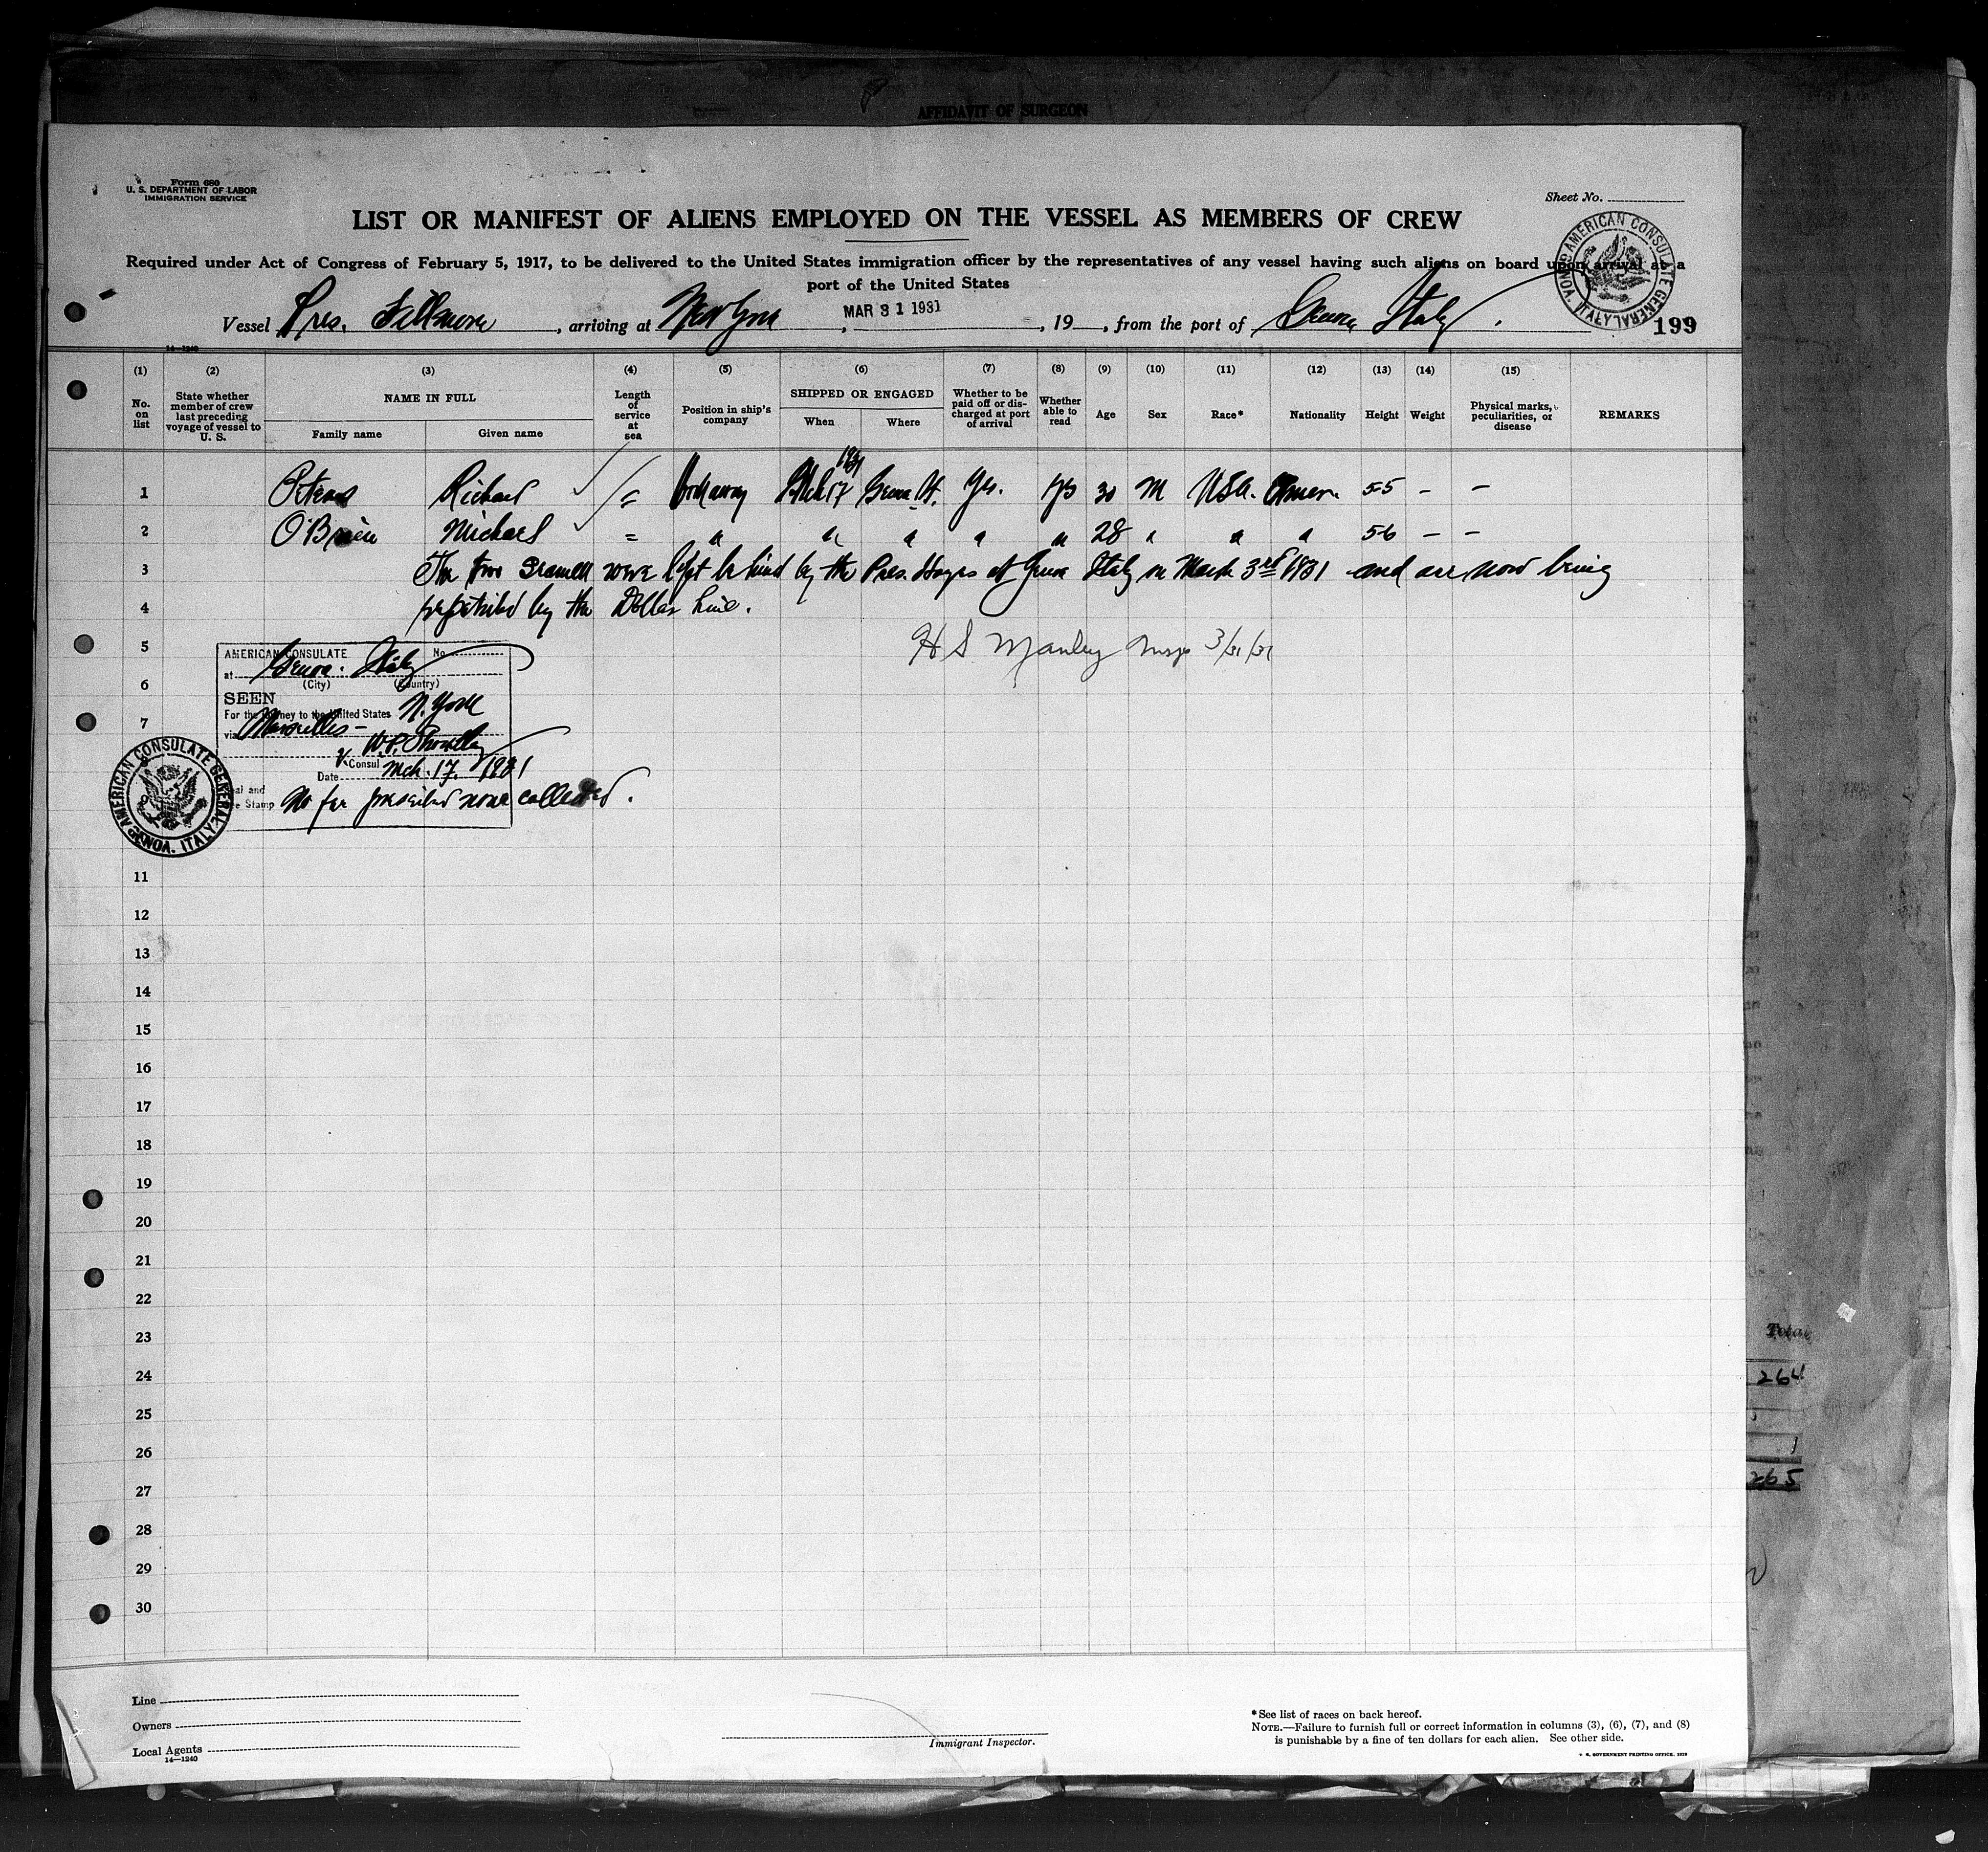 AFFIDAVIT OF SURGEON
Form 680
U. S. DEPARTMENT OF LABOR
IMMIGRATION SERVICE
Sheet No.
LIST OR MANIFEST OF ALIENS EMPLOYED ON THE VESSEL AS MEMBERS OF CREW
Required under Act of Congress of February 5, 1917, to be delivered to the United States immigration officer by the representatives of any vessel having such aliens on board upon arrival at a
port of the United States
AMERICAN CONSULATE GENERAL GENOA, ITALY
Vessel Pres. Fillmore, arriving at New York, MAR 31 1931, 19, from the port of Genoa Italy.
199
14—1240
(1) (2) (3) (4) (5) (6) (7) (8) (9) (10) (11) (12) (13) (14) (15)
No. on list
State whether member of crew last preceding voyage of vessel to U. S.
NAME IN FULL
Family name
Given name
Length of service at sea
Position in ship's company
SHIPPED OR ENGAGED
When
Where
Whether to be paid off or discharged at port of arrival
Whether able to read
Age
Sex
Race*
Nationality
Height
Weight
Physical marks, peculiarities, or disease
REMARKS
1931
1 Peters Richard = Workaway Mch 17 Genoa It. Yes. yes 30 M USA. Amer. 5-5 - -
2 O'Brien Michael = " " " " " 28 " " " 5-6 - -
3 The two seamen were left behind by the Pres. Hayes at Genoa Italy on March 3rd 1931 and are now being
4 repatriated by the Dollar Line.
5
H S Manley Insp 3/31/31
AMERICAN CONSULATE No.
at Genoa. Italy
(City) (Country)
6
SEEN
For the journey to the United States N. York
7
via Marseilles -
V. Consul
Date Mch. 17. 1931
Seal and
Fee Stamp No fee prescribed none collected.
AMERICAN CONSULATE GENERAL GENOA, ITALY
11
12
13
14
15
16
17
18
19
20
21
22
23
24
25
26
27
28
29
30
Total
264
1
265
Line
Owners
Local Agents
14—1240
Immigrant Inspector.
*See list of races on back hereof.
NOTE.—Failure to furnish full or correct information in columns (3), (6), (7), and (8)
is punishable by a fine of ten dollars for each alien. See other side.
U. S. GOVERNMENT PRINTING OFFICE. 1929